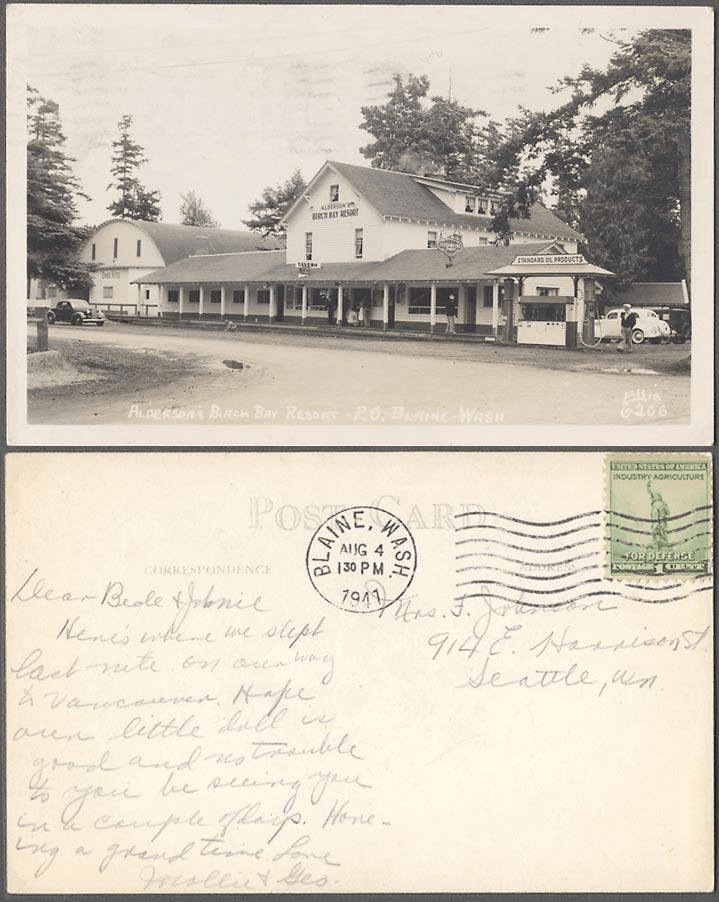 ALDERSON'S
BIRCH BAY RESORT
TAVERN
STANDARD OIL PRODUCTS
ALDERSON'S BIRCH BAY RESORT - P.O. BLAINE - WASH
Ellis
6206
POST CARD
CORRESPONDENCE
ADDRESS
BLAINE, WASH.
AUG 4
1 30 PM
1941
UNITED STATES OF AMERICA
INDUSTRY·AGRICULTURE
FOR DEFENSE
POSTAGE 1 CENT
Dear Bede & Johnie
Here's where we slept
last nite on our way
to Vancouver. Hope
our little doll is
good and no trouble
to you be seeing you
in a couple of days. Have-
ing a grand time Love
Mollie & Geo.
Mrs. F. Johnson
914 E. Harrison St.
Seattle, Wn.